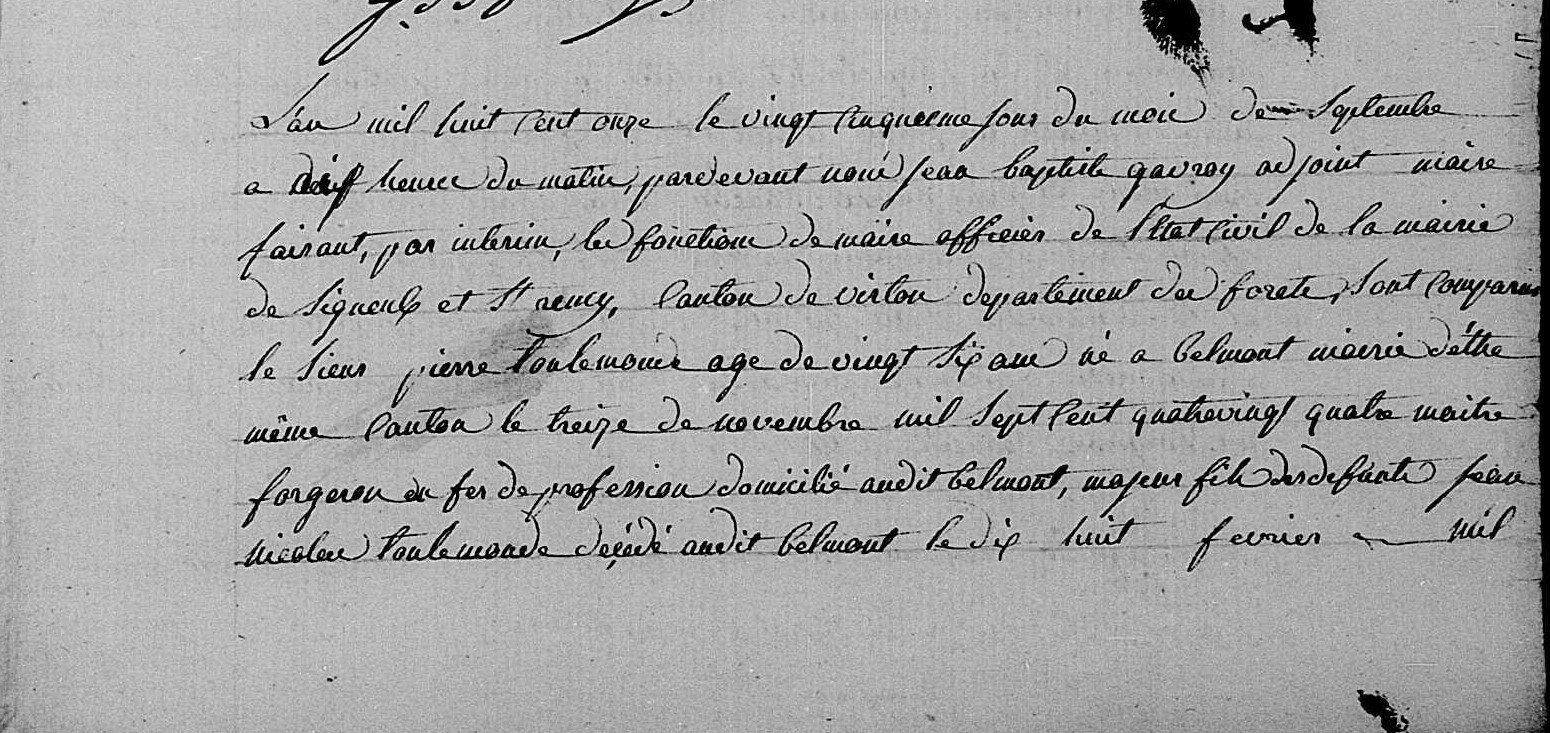 L'an mil huit cent onze le vingt cinquieme jour du mois de Septembre
a heures du matin, pardevant nous jean baptiste gavroy adjoint maire
faisant, par interim, les fonctions de maire officier de l'Etat Civil de la mairie
de Signeulx et St remy, Canton de virton departement des forets, sont comparus
le sieur pierre toulemonde age de vingt six ans né a belmont mairie d'éthe
même Canton le treize de novembre mil sept cent quatrevingt quatre maitre
forgeron en fer de profession domicilié audit belmont, majeur fils des defunts jean
nicolas toulemonde décédé audit belmont le dix huit fevrier mil